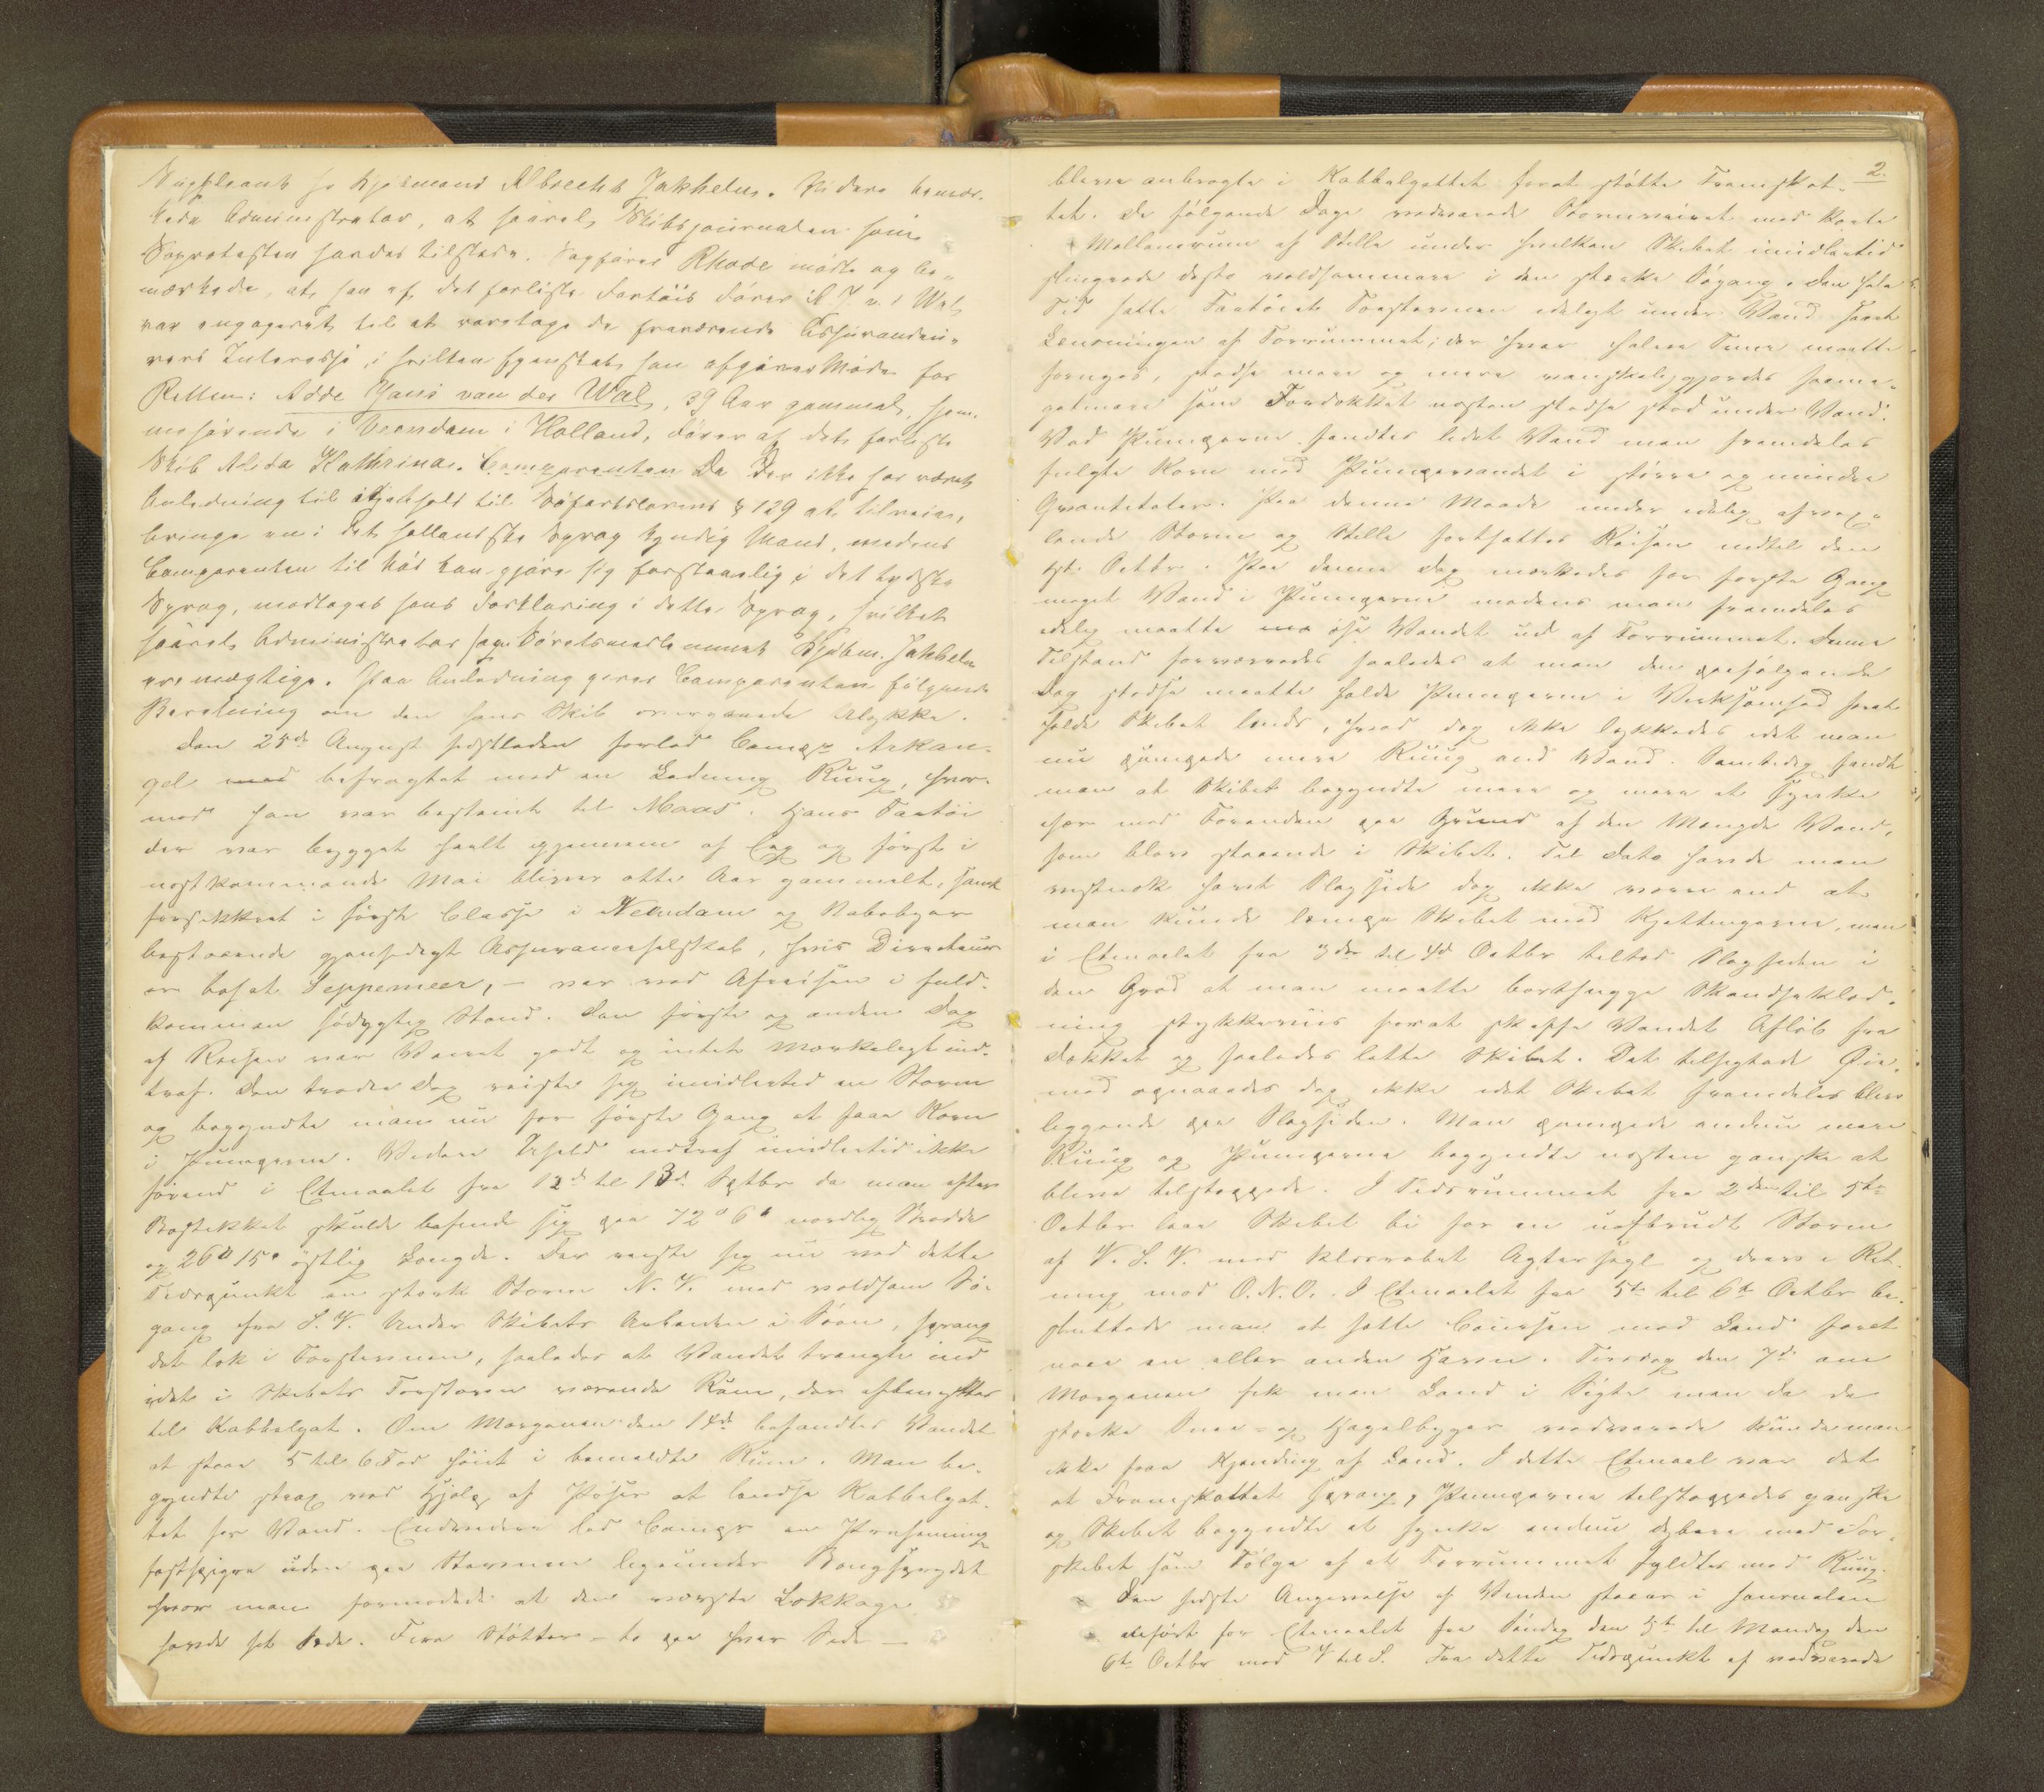 Suppleant hr Kjøbmand Albrecht Jakhelln. Videre bemær-
kede Administrator, at saavel Skibsjournalen som
Søprotesten havdes tilstede. Sagfører Rhode mødte og be-
mærkede, at han af det forliste Fartøis Fører A. J. v. d. Wal
var engageret til at varetage de fraværende Assurandeu-
rers Interesse, i hvilken Egenskab han afgiver Møde for
Retten: Adde Jans van der Wal, 39 Aar gammel, hjem-
mehørende i Veendam i Holland, Fører af det forliste
Skib Alida Kathrina. Comparenten Da Der ikke har været
Anledning til i Henhold til Søfartslovens § 129 at tilveie-
bringe en i det hollandske Sprog kyndig Mand, medens
Comparenten til Nød kan gjøre sig forstaaelig i det tydske
Sprog, modtages hans Forklaring i dette Sprog, hvilket
saavel Administrator som Søretsmedlemmet Kjøbm. Jakhelln
ere mægtige. Paa Anledning gaves Comparenten følgende
Beretning om den hans Skib overgaaede Ulykke.
Den 25de August sidstleden forlod Compr Arkan-
gel med befragtet med en Ladning Rüug, hvor-
med han var bestemt til Maas. Hans Fartøi
der var bygget heelt igjennem af Eeg og først i
nestkommende Mai bliver otte Aar gammelt, samt
forsikkret i første Classe i Veendam og Nabobyer
bestaaende gjensidigt Assuranceselskab, hvis Directeur
er bosat Seppemeer, – var ved Afreisen i fuld-
kommen sødygtig Stand. Den første og anden Dag
af Reisen var Veiret godt og intet Mærkeligt ind-
traf. Den tredie Dag reiste sig imidlertid en Storm
og begyndte man nu for første Gang at faae Korn
i Pumperne. Videre Uheld indtraf imidlertid ikke
førend i Etmaalet fra 12de til 13de Septbr da man efter
Bestikket skulde befinde sig paa 72° 6' nordlig Bredde
og 26° 15' østlig Længde. Der reiste sig nu ved dette
Tidspunkt en stærk Storm N. V. med voldsom Sø-
gang fra S. V. Under Skibets Arbeiden i Søen, sprang
det læk i Forstevnen, saaledes at Vandet trængte ind
i det i Skibets Forstavn værende Rum, der afbenyttes
til Kabbelgat. Om Morgenen den 14de befandtes Vandet
at staae 5 til 6 Fod høit i bemeldte Rum. Man be-
gyndte strax ved Hjælp af Pøser at lændse Kabbelgat-
tet for Vand. Endvidere lod Compr en Presenning
fastspigre uden paa Stevnen ligeunder Bougspryde
hvor man formodede at den værste Lækkage
havde sit Sæde. Fire Støtter – to paa hver Side –
2.
bleve anbragte i Kabbelgattet forat støtte Framskot-
tet. De følgende Dage vedvarede Stormveiret med korte
Mellemrum af Stille under hvilken Skibet imidlertid
slingrede desto voldsommere i den stærke Søgang. Den hele
Tid satte Fartøiet Forstevnen idelegt under Vand samt
Lensningen af Forrummet, der hver halve Time maatte
foregaa, stedse mere og mere vanskeliggjordes saame-
getmere som Fordækket næsten stedse stod under Vand.
Ved Pumperne fandtes lidet Vand men fremdeles
fulgte Korn med Pumpevandet i større og mindre
Qvantiteter. Paa denne Maade under idelig afvex-
lende Storm og Stille fortsattes Reisen indtil den
1ste Octbr. Paa denne Dag mærkedes for første Gang
meget Vand i Pumperne medens man fremdeles
idelig maatte øse Vandet ud af Forrummet. Denne
Tilstand forværredes saaledes at man den paafølgende
Dag stedse maatte holde Pumperne i Virksomhed forat
holde Skibet lænds, hvad dog ikke lykkedes idet man
nu pumpede mere Rüug end Vand. Samtidig fandt
man at Skibet begyndte mere og mere at synke
især med Forenden paa Grund af den Mængde Vand,
som blev staaende i Skibet. Til Dato havde man
vistnok havt Slagside dog ikke værre end at
man kunde lempe Skibet med Kjættingerne, men
i Etmaalet fra 3die til 4de Octbr tiltog Slagsiden i
den Grad at man maatte borthugge Skandseklæd-
ning stykkeviis forat skaffe Vandet Afløb fra
Dækket og saaledes lette Skibet. Det tilsigtede Øie-
med opnaaedes dog ikke idet Skibet fremdeles blev
liggende paa Slagsiden. Man pumpede endnu mere
Rüug og Pumperne begyndte næsten ganske at
blive tilstoppede. I Tidsrummet fra 2den til 5te
Octbr laae Skibet bi for en uafbrudt Storm
af V. S. V. med klosrebet Agtersegl og drev i Ret-
ning mod O. N. O. I Etmaalet fra 5te til 6te Octbr be-
sluttede man at sætte Coursen mod Land forat
naae en eller anden Havn. Tirsdag den 7de om
Morgenen fik man Land i Sigte men da de
stærke Snee- og Hagelbyger vedvarede kunde man
ikke faae Kjending af Land. I dette Etmaal var det
at Framskottet sprang, Pumperne tilstoppedes ganske
og Skibet begyndte at synke endnu dybere med For-
skibet som Følge af at Forrummet fyldtes med Rüug.
Den sidste Angivelse af Vinden staaer i Journalen
anført for Etmaalet fra Søndag den 5te til Mandag den
6te Octbr med V til S. Fra dette Tidspunkt af vedvarede